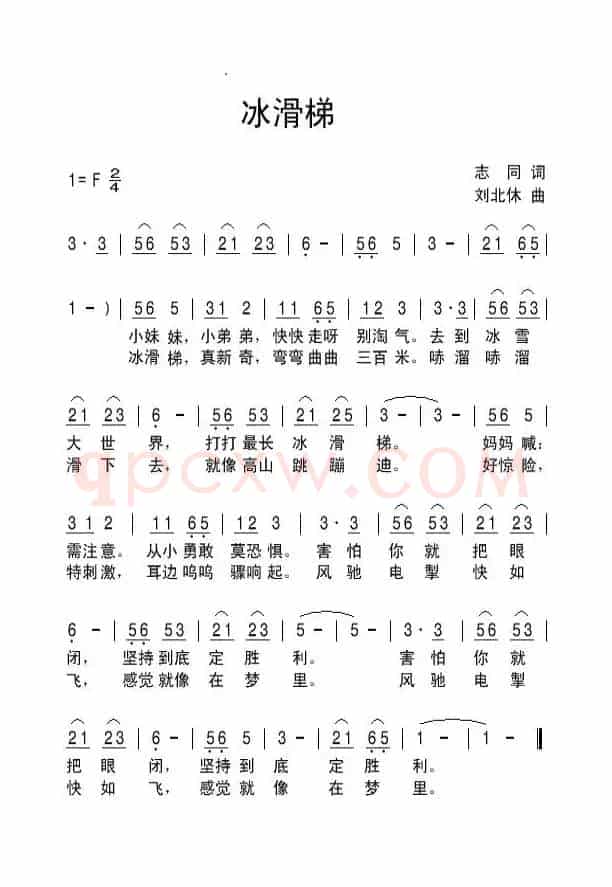 冰滑梯
1= F 2/4
志 同 词
刘北休 曲
3· 3 | 56 53 | 21 23 | 6 - | 56 5 | 3 - | 21 65 |
1 - ) | 56 5 | 31 2 | 11 65 | 12 3 | 3· 3 | 56 53 |
小妹 妹，小弟 弟，快快 走呀 别淘 气。去 到 冰 雪
冰滑 梯，真新 奇，弯弯 曲曲 三百 米。哧 溜 哧 溜
21 23 | 6 - | 56 53 | 21 25 | 3 - | 3 - | 56 5 |
大 世 界， 打打 最长 冰 滑 梯。 妈妈 喊：
滑 下 去， 就像 高山 跳 蹦 迪。 好惊 险，
qpcxw.com
31 2 | 11 65 | 12 3 | 3· 3 | 56 53 | 21 23 |
需注 意。 从小 勇敢 莫恐 惧。 害 怕 你 就 把 眼
特刺 激，耳边 呜呜 骤响 起。 风 驰 电 掣 快 如
6 - | 56 53 | 21 23 | 5 - | 5 - | 3· 3 | 56 53 |
闭， 坚持 到底 定 胜 利。 害 怕 你 就
飞， 感觉 就像 在 梦 里。 风 驰 电 掣
21 23 | 6 - | 56 5 | 3 - | 21 65 | 1 - | 1 - ‖
把 眼 闭， 坚持 到 底 定 胜 利。
快 如 飞， 感觉 就 像 在 梦 里。